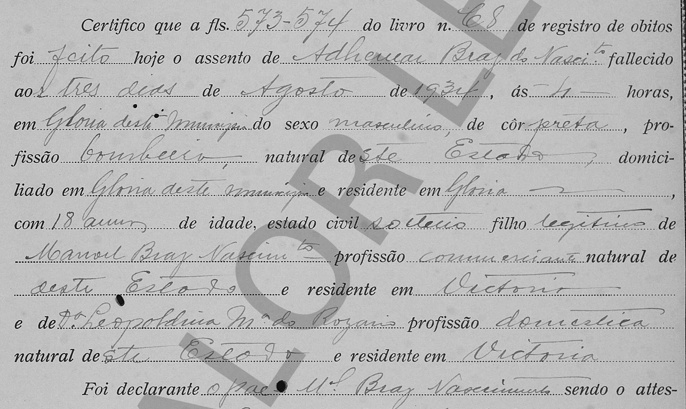 Certifico que a fls. 573-574 do livro n. C8 de registro de obitos
foi feito hoje o assento de Adhemar Braz do Nascito fallecido
aos tres dias de Agosto de 1934, ás — horas,
em Gloria deste Municipio do sexo masculino, de côr preta, pro-
fissão natural deste Estado, domici-
liado em Gloria deste municipio e residente em Gloria
com 18 annos de idade, estado civil solteiro filho legitimo de
Manoel Braz Nascimto profissão commerciante natural de
deste Estado e residente em Victoria
e de Da. Leopoldina Ma do Rozario profissão domestica
natural deste Estado e residente em Victoria
Foi declarante o pae Ml. Braz Nascimento sendo o attes-
VALOR LE